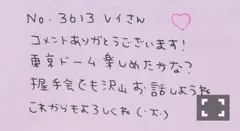 No. 3613 レイさん
コメントありがとうございます!
東京ドーム楽しめたかな?
握手会でも沢山お話しようね
これからもよろしくね(・ᴗ・)